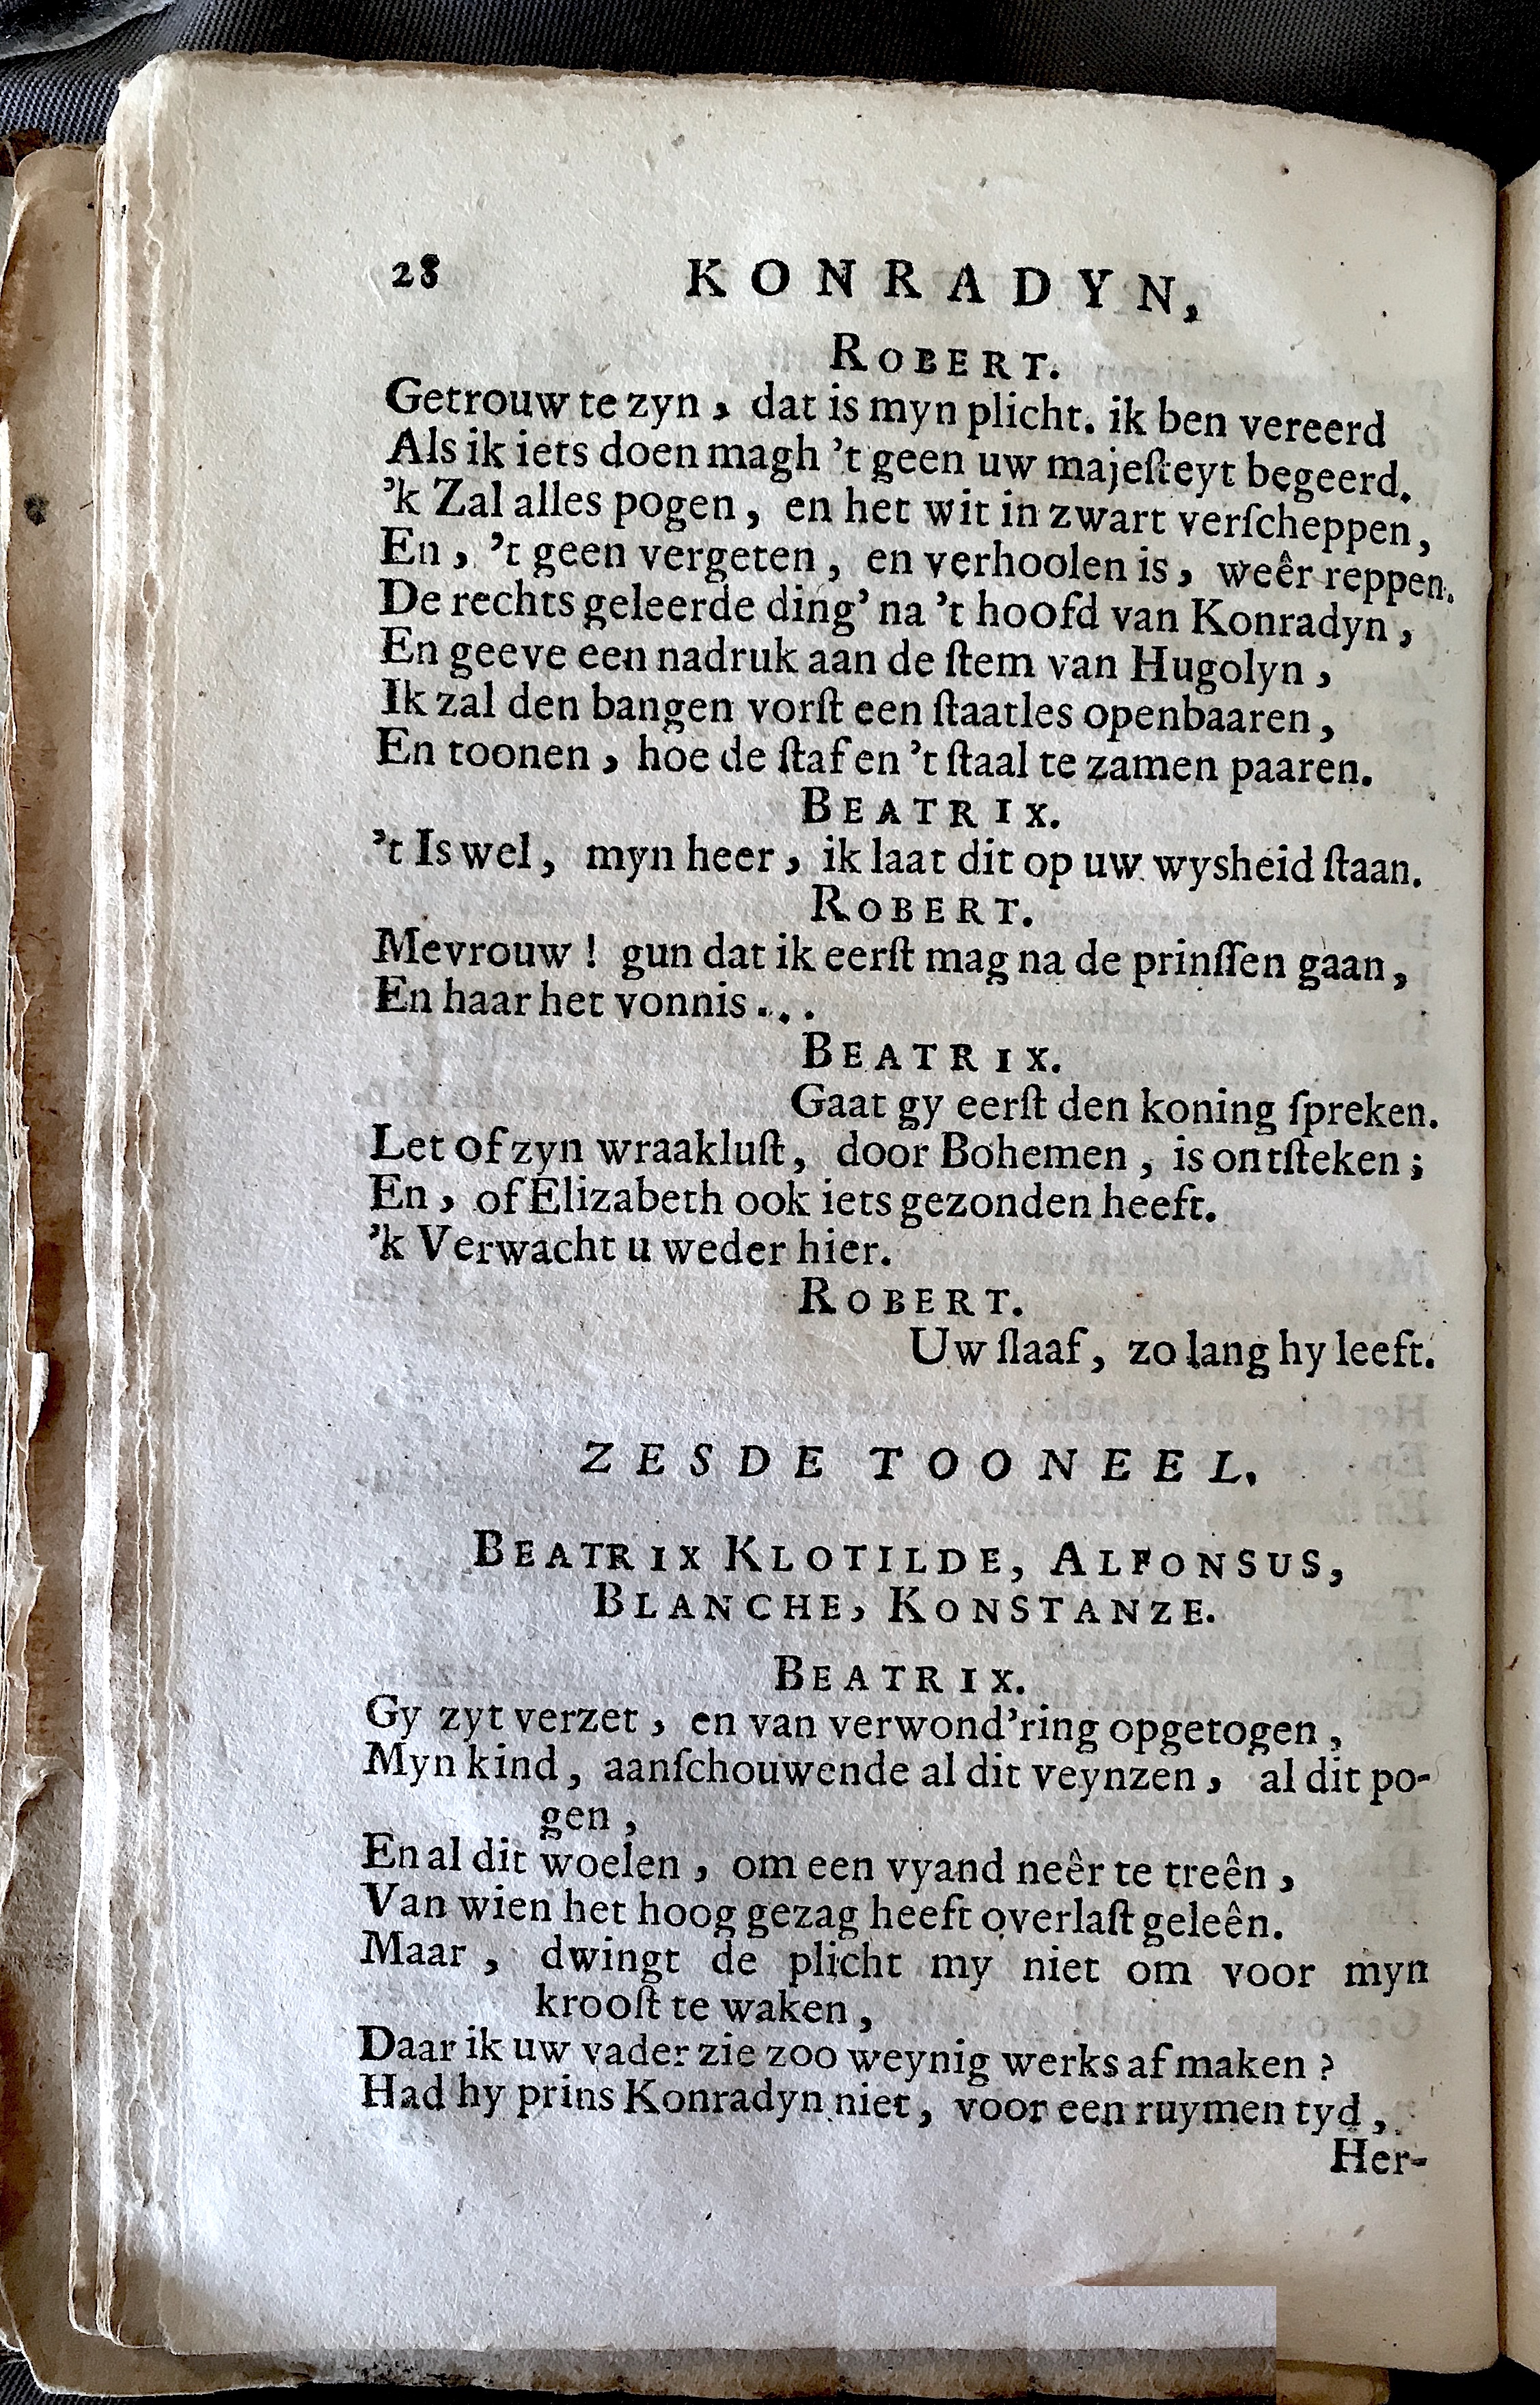 28 KONRADYN,
ROBERT.
Getrouw te zyn, dat is myn plicht. ik ben vereerd
Als ik iets doen magh 't geen uw majeſteyt begeerd.
'k Zal alles pogen, en het wit in zwart verſcheppen,
En, 't geen vergeten, en verhoolen is, weêr reppen.
De rechts geleerde ding' na 't hoofd van Konradyn,
En geeve een nadruk aan de ſtem van Hugolyn,
Ik zal den bangen vorſt een ſtaatles openbaaren,
En toonen, hoe de ſtaf en 't ſtaal te zamen paaren.
BEATRIX.
't Is wel, myn heer, ik laat dit op uw wysheid ſtaan.
ROBERT.
Mevrouw! gun dat ik eerſt mag na de prinſſen gaan,
En haar het vonnis...
BEATRIX.
Gaat gy eerſt den koning ſpreken.
Let of zyn wraakluſt, door Bohemen, is ontſteken;
En, of Elizabeth ook iets gezonden heeft.
'k Verwacht u weder hier.
ROBERT.
Uw ſlaaf, zo lang hy leeft.
ZESDE TOONEEL.
BEATRIX KLOTILDE, ALFONSUS,
BLANCHE, KONSTANZE.
BEATRIX.
Gy zyt verzet, en van verwond'ring opgetogen,
Myn kind, aanſchouwende al dit veynzen, al dit po-
gen,
En al dit woelen, om een vyand neêr te treên,
Van wien het hoog gezag heeft overlaſt geleên.
Maar, dwingt de plicht my niet om voor myn
krooſt te waken,
Daar ik uw vader zie zoo weynig werks af maken?
Had hy prins Konradyn niet, voor een ruymen tyd,
Her-